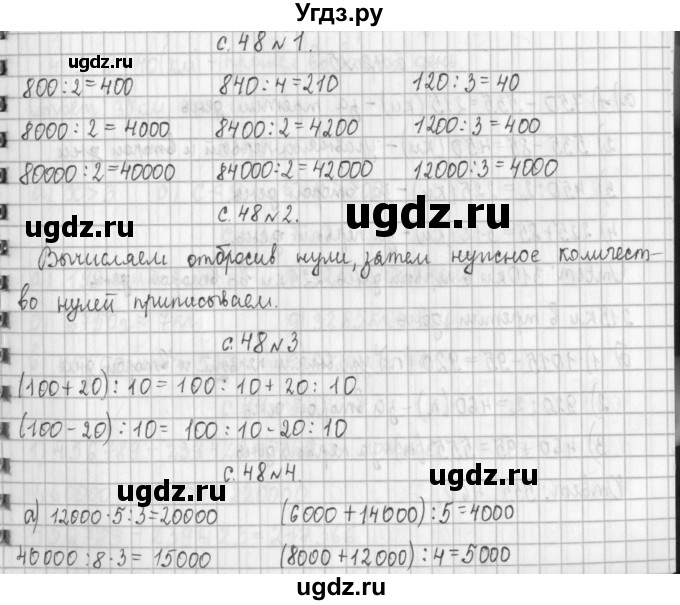 Угдз.ру
с. 48 №1.
ugdz.ru
800:2=400 840:4=210 120:3=40
8000:2=4000 8400:2=4200 1200:3=400
80000:2=40000 84000:2=42000 12000:3=4000
с. 48 №2.
ugdz.ru
ugdz.ru
Вычисляем отбросив нули, затем нужное количест-
во нулей приписываем.
с. 48 №3
(100+20):10=100:10+20:10
(100-20):10=100:10-20:10
с. 48 №4.
ugdz.ru
ugdz.ru
а) 12000·5:3=20000 (6000+14000):5=4000
40000:8·3=15000 (8000+12000):4=5000
ugdz.ru
ugdz.ru